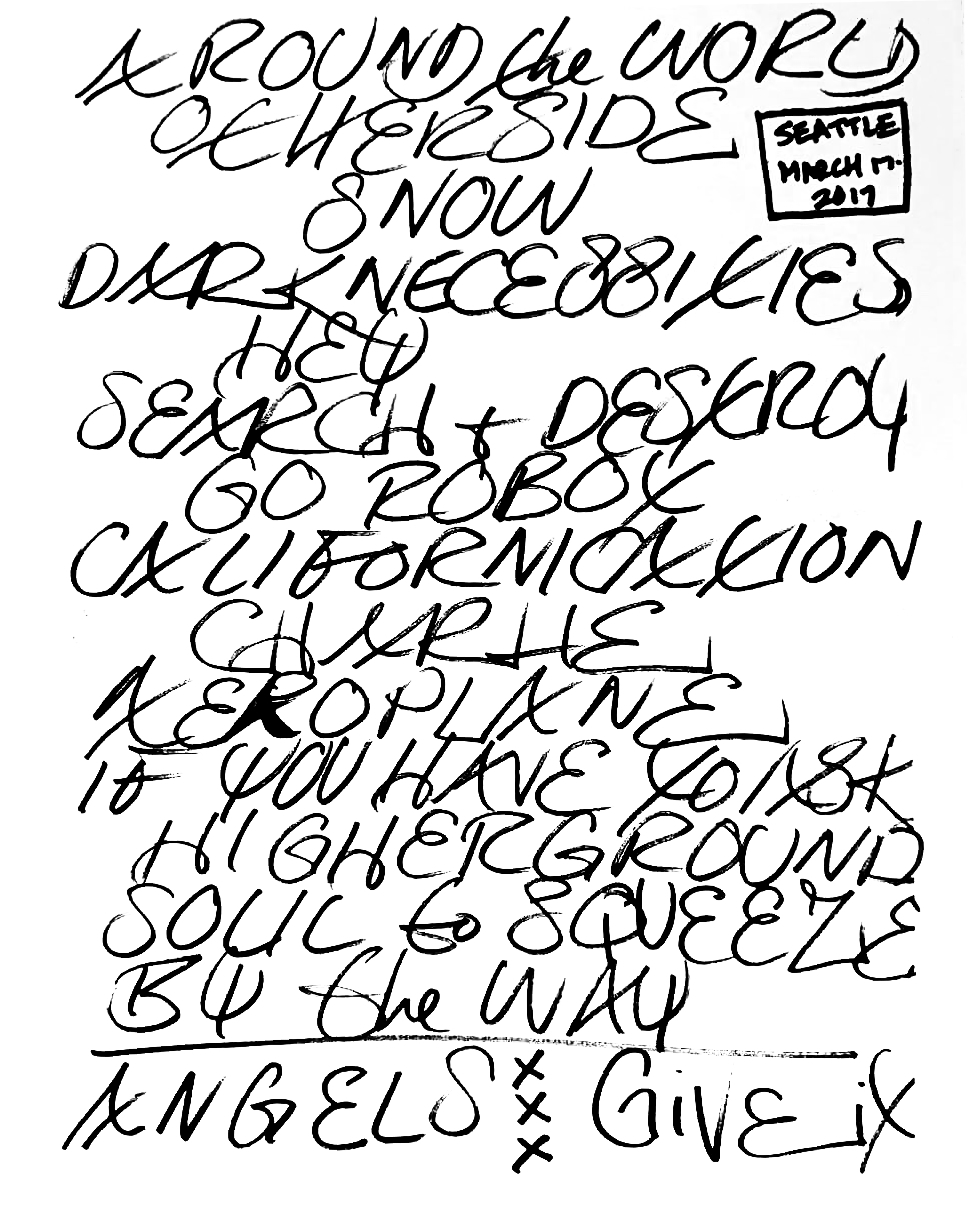 AROUND the WORLD
OTHERSIDE
SEATTLE
MARCH 17.
2017
SNOW
DARK NECESSITIES
HEY
SEARCH + DESTROY
GO ROBOT
CALIFORNICATION
CHARLIE
AEROPLANE
IF YOU HAVE TO ASK
HIGHER GROUND
SOUL to SQUEEZE
BY the WAY
ANGELS xxx GiVE iT